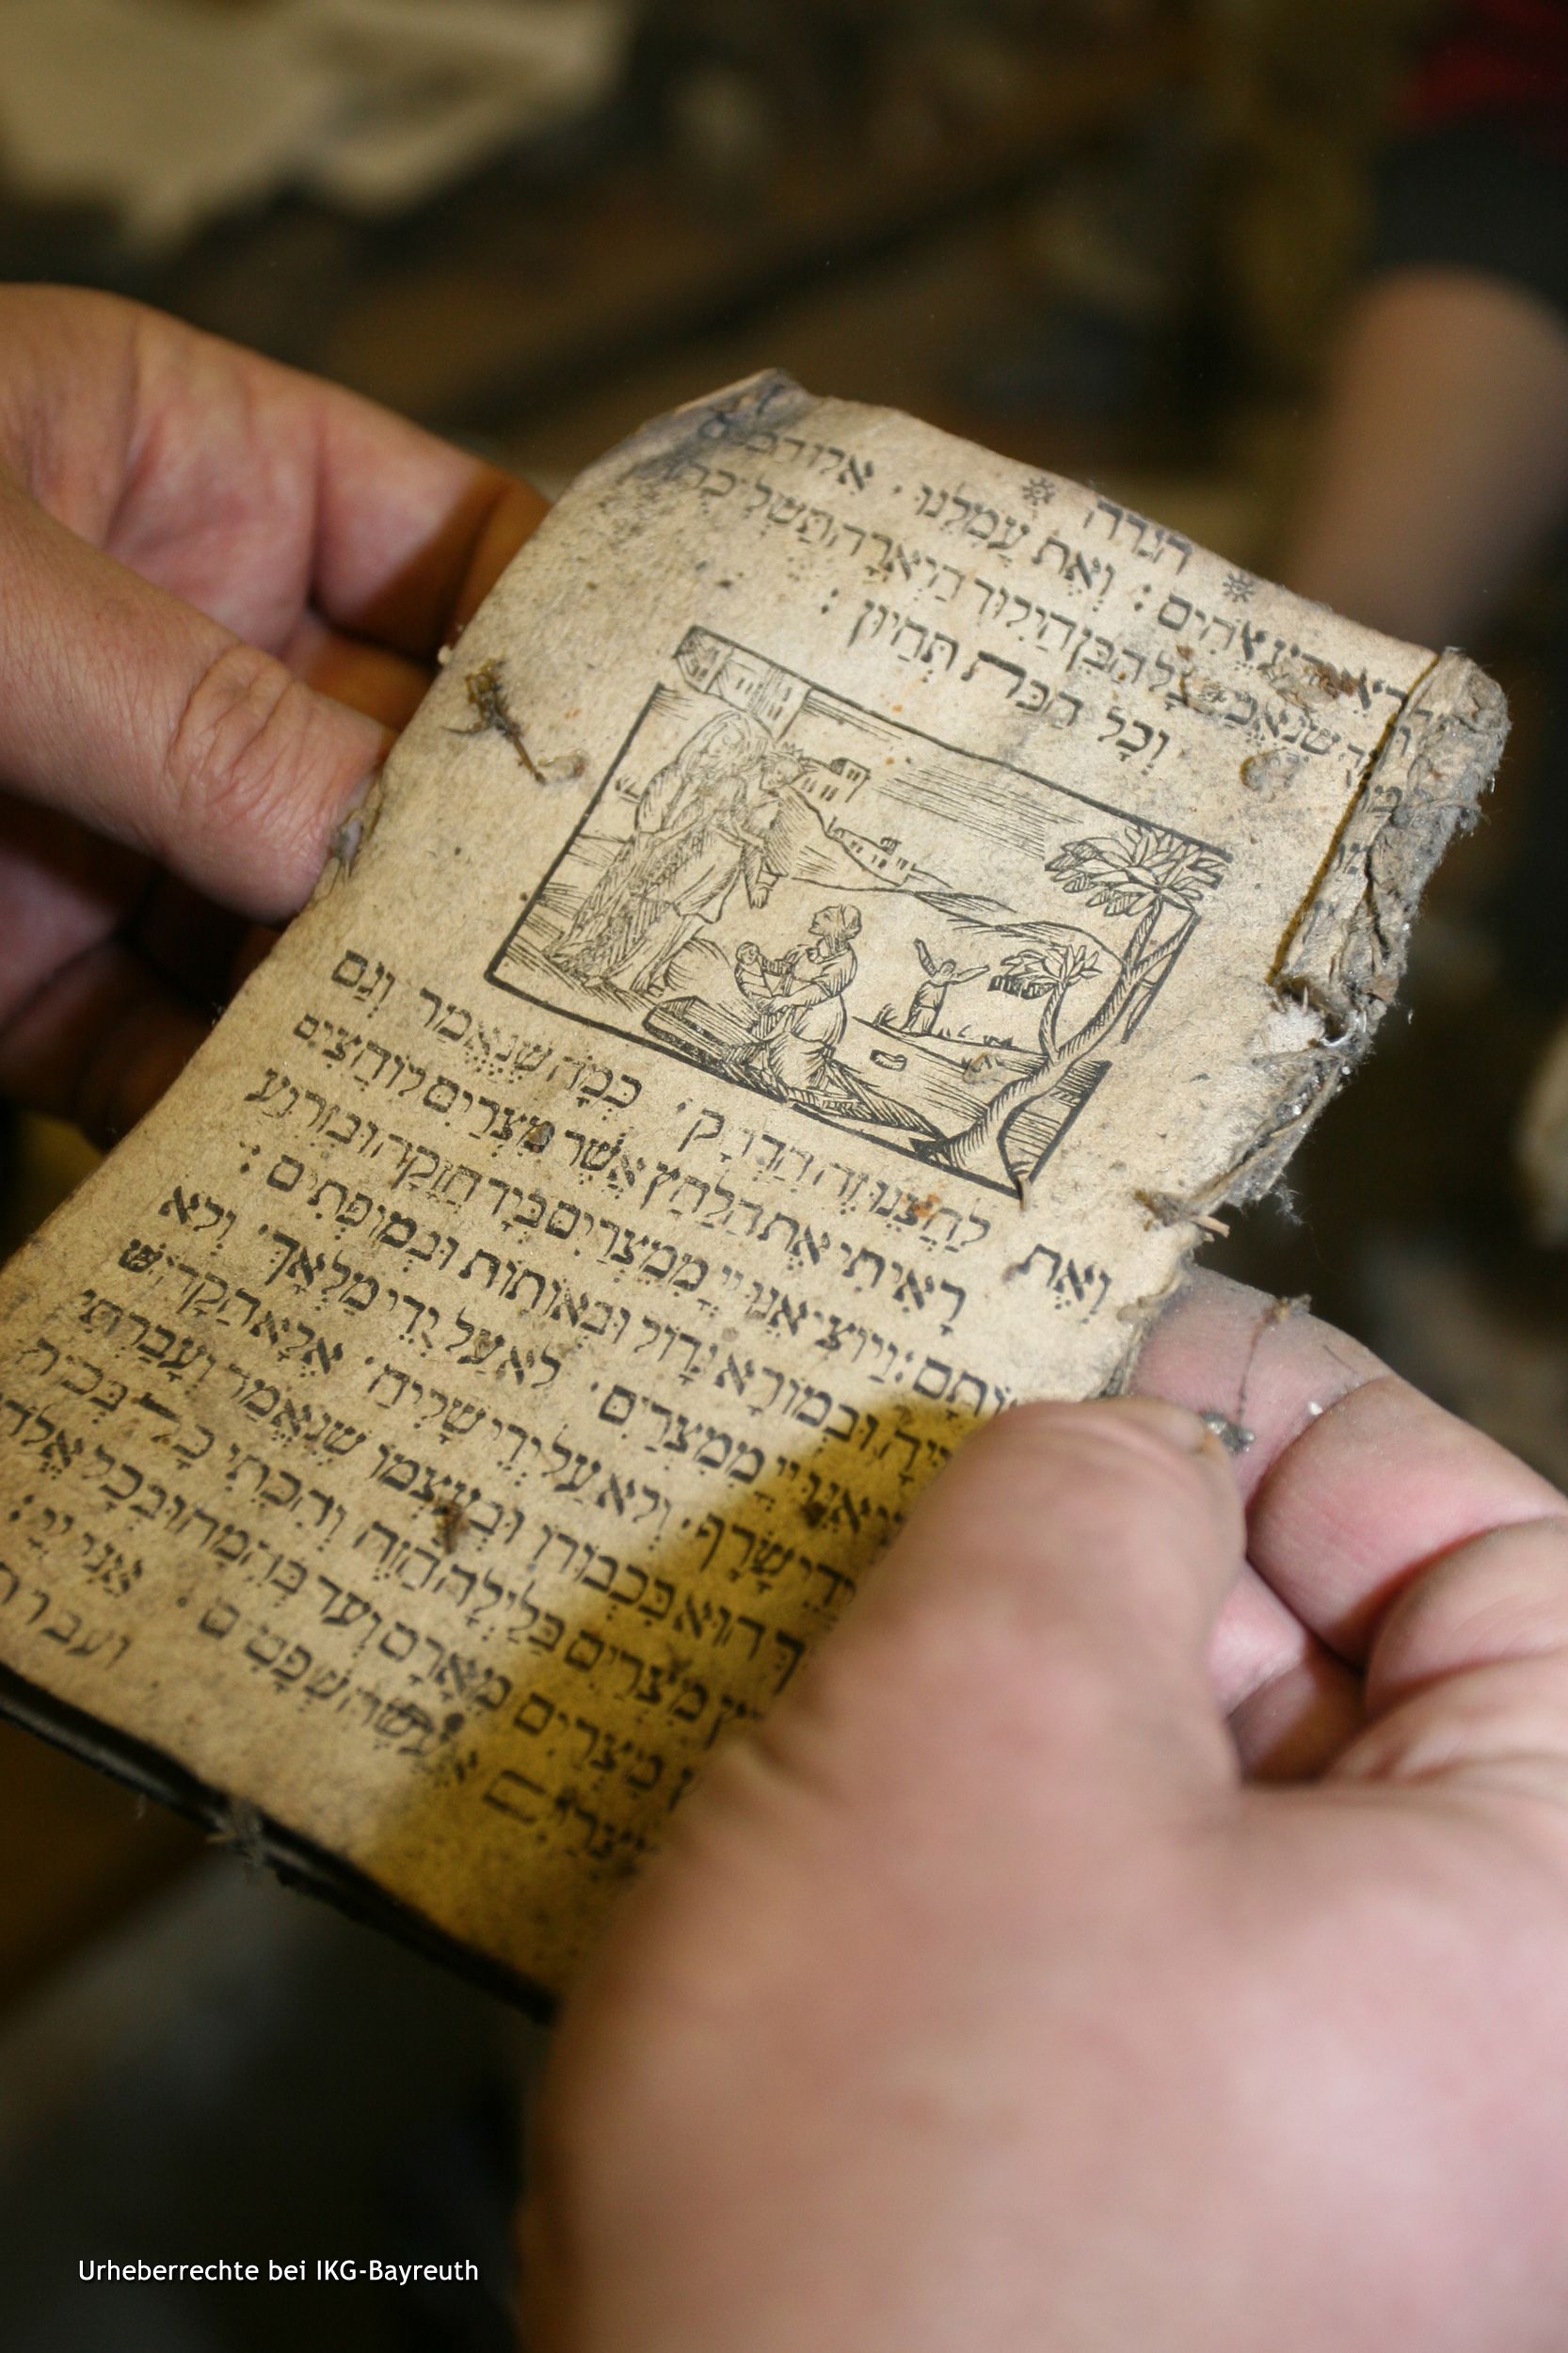 הגדה
אלהים : וְאֶת עֲמָלֵנוּ .
הַבֵּן הַיִלוֹד הַיְאֹרָה תַּשְׁלִיכֻ
וְכָל הַבַּת תְּחַיוּן :
וְאֶת לַחֲצֵנוּ זֶה הַדְּחָק . כְּמָה שֶׁנֶאֱמַר וְגַם
רָאִיתִי אֶת הַלַחַץ אֲשֶׁר מִצְרַיִם לוֹחֲצִים
אוֹתָם : וַיוֹצִיאֵנוּ יְיָ מִמִצְרַיִם בְּיָד חֲזָקָה וּבִזְרוֹעַ
וּבְמוֹרָא גָדוֹל וּבְאוֹתוֹת וּבְמוֹפְתִים :
יְיָ מִמִצְרַיִם . לֹא עַל יְדֵי מַלְאָךְ . וְלֹא
יְדֵי שָׂרָף . וְלֹא עַל יְדֵי שָׁלִיחַ . אֶלָא הַקָדוֹשׁ
הוּא בִּכְבוֹדוֹ וּבְעַצְמוֹ שֶׁנֶאֱמַר וְעָבַרְתִּי
מִצְרַיִם בַּלַיְלָה הַזֶה וְהִכֵּתִי כָל בְּכוֹר
מִצְרַיִם מֵאָדָם וְעַד בְּהֵמָה וּבְכָל
מִצְרַיִם אֶעֱשֶׂה שְׁפָטִים . אֲנִי יְיָ :
ועברת
Urheberrechte bei IKG-Bayreuth